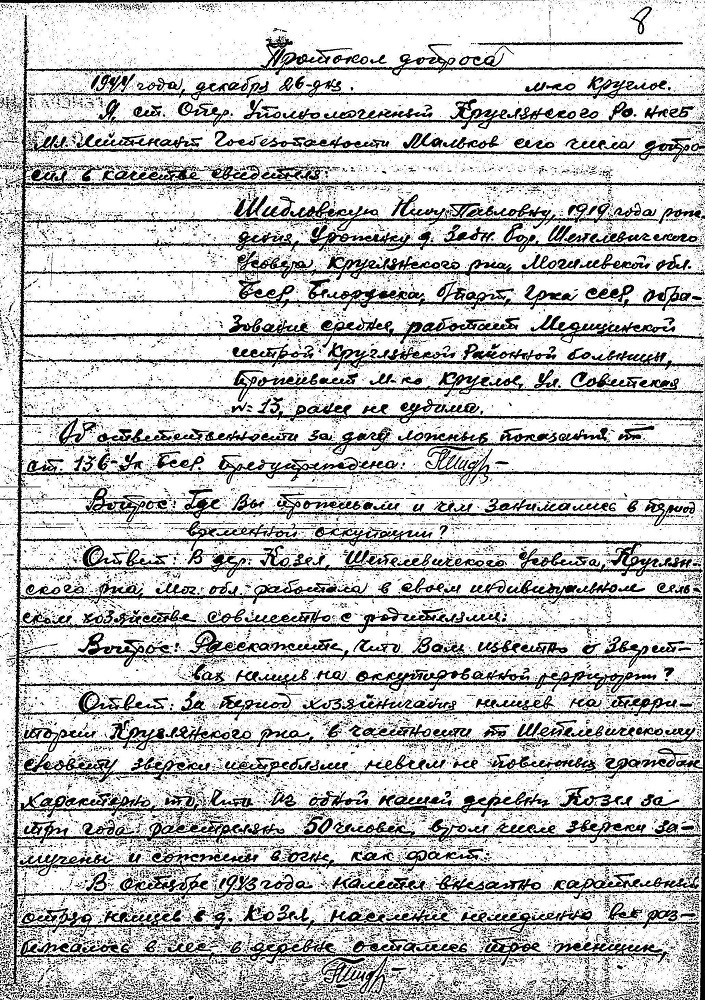 8
Протокол допроса
1944 года, декабря 26-дня. м-ко Круглое.
Я, ст. Опер. Уполномоченный Круглянского Ро. НКГБ
мл. Лейтенант Госбезопасности Мальков сего числа допро-
сил в качестве свидетеля:
Шидловскую Нину Павловну, 1919 года рож-
дения, Урожен. д. Шепелевичского
с/совета, Круглянского р-на, Могилевской обл.
БССР, Белоруска, б/парт, гр-ка СССР, обра-
зование среднее, работает Медицинской
сестрой Круглянской Районной больницы,
проживает м-ко Круглое, ул. Советская
№ 13, ранее не судима.
Об ответственности за дачу ложных показаний по
ст. 136-УК БССР. предупреждена:
Вопрос: Где Вы проживали и чем занимались в период
временной оккупации?
Ответ: В дер. Козел, Шепелевичского с/совета, Круглян-
ского р-на, Мог. обл. работала в своем индивидуальном сель-
ском хозяйстве совместно с родителями.
Вопрос: Расскажите, что Вам известно о зверст-
вах немцев на оккупированной территории?
Ответ: За период хозяйничания немцев на терри-
тории Круглянского р-на, в частности по Шепелевическому
с/совету зверски истребляли невчем не повинных граждан
характерно то, что из одной нашей деревни Козел за
три года расстреляно 50 человек, в том числе зверски за-
мучены и сожжены в огне, как факт:
В октябре 1943 года налетел внезапно карательный
отряд немцев в д. Козел, население немедленно все раз-
бежалось в лес, в деревне остались трое женщин,